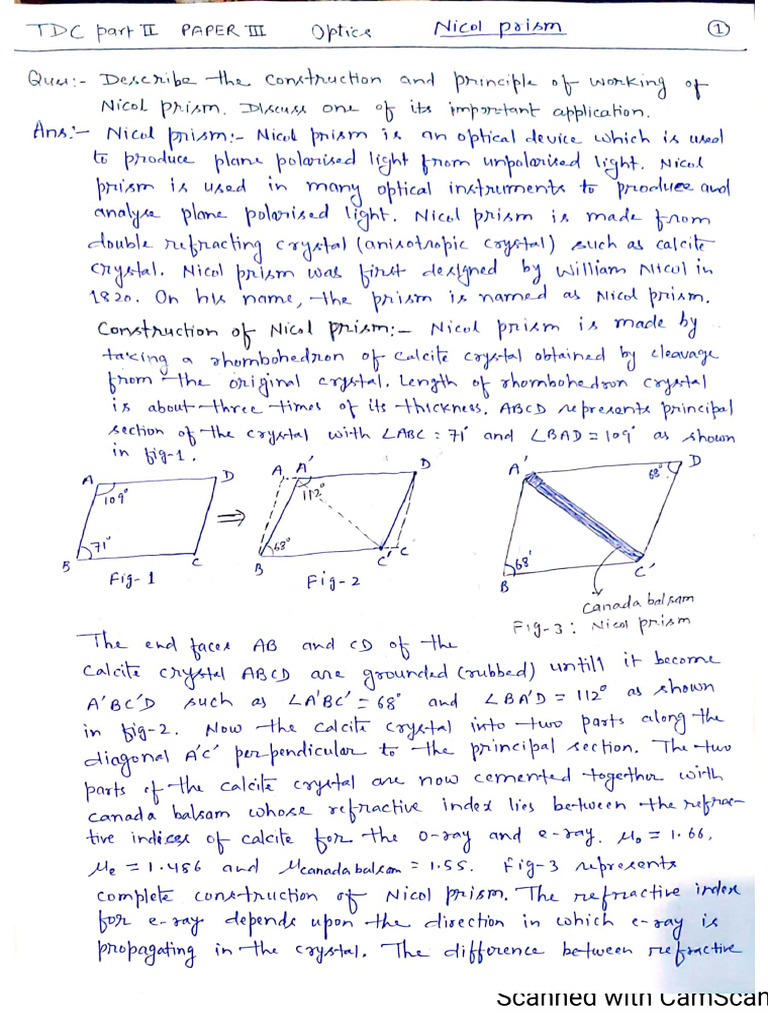 TDC part II PAPER III Optics Nicol prism 1
Ques:- Describe the construction and principle of working of
Nicol prism. Discuss one of its important application.
Ans:- Nicol prism:- Nicol prism is an optical device which is used
to produce plane polarised light from unpolarised light. Nicol
prism is used in many optical instruments to produce and
analyse plane polarised light. Nicol prism is made from
double refracting crystal (anisotropic crystal) such as calcite
crystal. Nicol prism was first designed by William Nicol in
1820. On his name, the prism is named as Nicol prism.
Construction of Nicol prism:- Nicol prism is made by
taking a rhombohedron of calcite crystal obtained by cleavage
from the original crystal. Length of rhombohedron crystal
is about three times of its thickness. ABCD represents principal
section of the crystal with ∠ABC = 71° and ∠BAD = 109° as shown
in fig-1.
A D 109° 71° B C
Fig-1
⇒
A A' D 112° 68° B C' C
Fig-2
A' D 68° 68° B C'
Canada balsam
Fig-3: Nicol prism
The end faces AB and CD of the
calcite crystal ABCD are grounded (rubbed) untill it become
A'BC'D such as ∠A'BC' = 68° and ∠BA'D = 112° as shown
in fig-2. Now the calcite crystal into two parts along the
diagonal A'C' perpendicular to the principal section. The two
parts of the calcite crystal are now cemented together with
canada balsam whose refractive index lies between the refrac-
tive indices of calcite for the o-ray and e-ray. μo = 1.66,
μe = 1.486 and μcanada balsam = 1.55. Fig-3 represents
complete construction of Nicol prism. The refractive index
for e-ray depends upon the direction in which e-ray is
propagating in the crystal. The difference between refractive
Scanned with CamScan